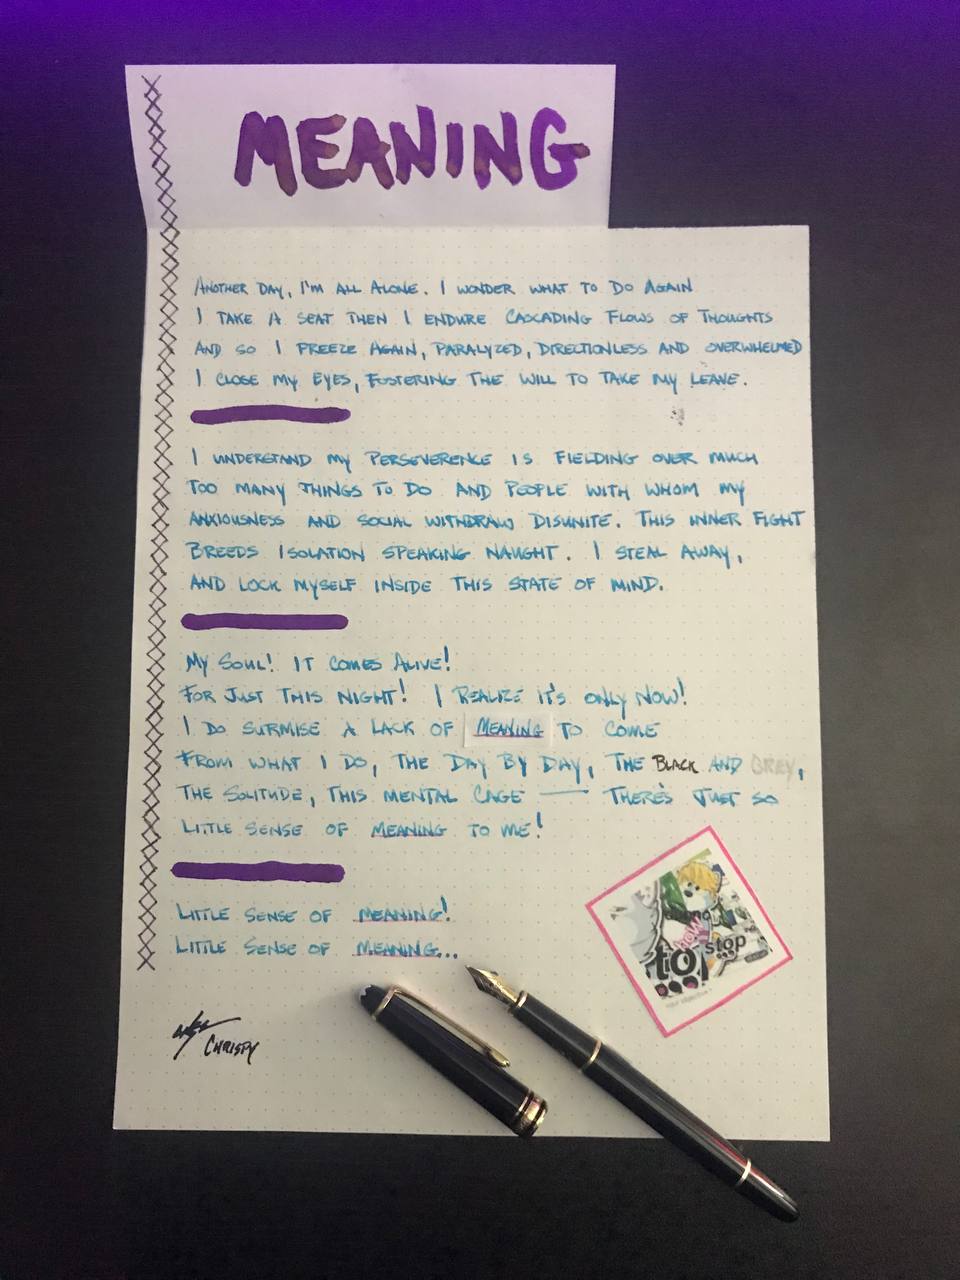 MEANING
ANOTHER DAY, I'M ALL ALONE. I WONDER WHAT TO DO AGAIN
I TAKE A SEAT THEN I ENDURE CASCADING FLOWS OF THOUGHTS
AND SO I FREEZE AGAIN, PARALYZED, DIRECTIONLESS AND OVERWHELMED
I CLOSE MY EYES, FOSTERING THE WILL TO TAKE MY LEAVE.
I UNDERSTAND MY PERSEVERENCE IS FIELDING OVER MUCH
TOO MANY THINGS TO DO AND PEOPLE WITH WHOM MY
ANXIOUSNESS AND SOCIAL WITHDRAW DISUNITE. THIS INNER FIGHT
BREEDS ISOLATION SPEAKING NAUGHT. I STEAL AWAY,
AND LOCK MYSELF INSIDE THIS STATE OF MIND.
MY SOUL! IT COMES ALIVE!
FOR JUST THIS NIGHT! I REALIZE IT'S ONLY NOW!
I DO SURMISE A LACK OF MEANING TO COME
FROM WHAT I DO, THE DAY BY DAY, THE BLACK AND GREY,
THE SOLITUDE, THIS MENTAL CAGE — THERE'S JUST SO
LITTLE SENSE OF MEANING TO ME!
LITTLE SENSE OF MEANING!
LITTLE SENSE OF MEANING...
how
to stop
CHRISPY